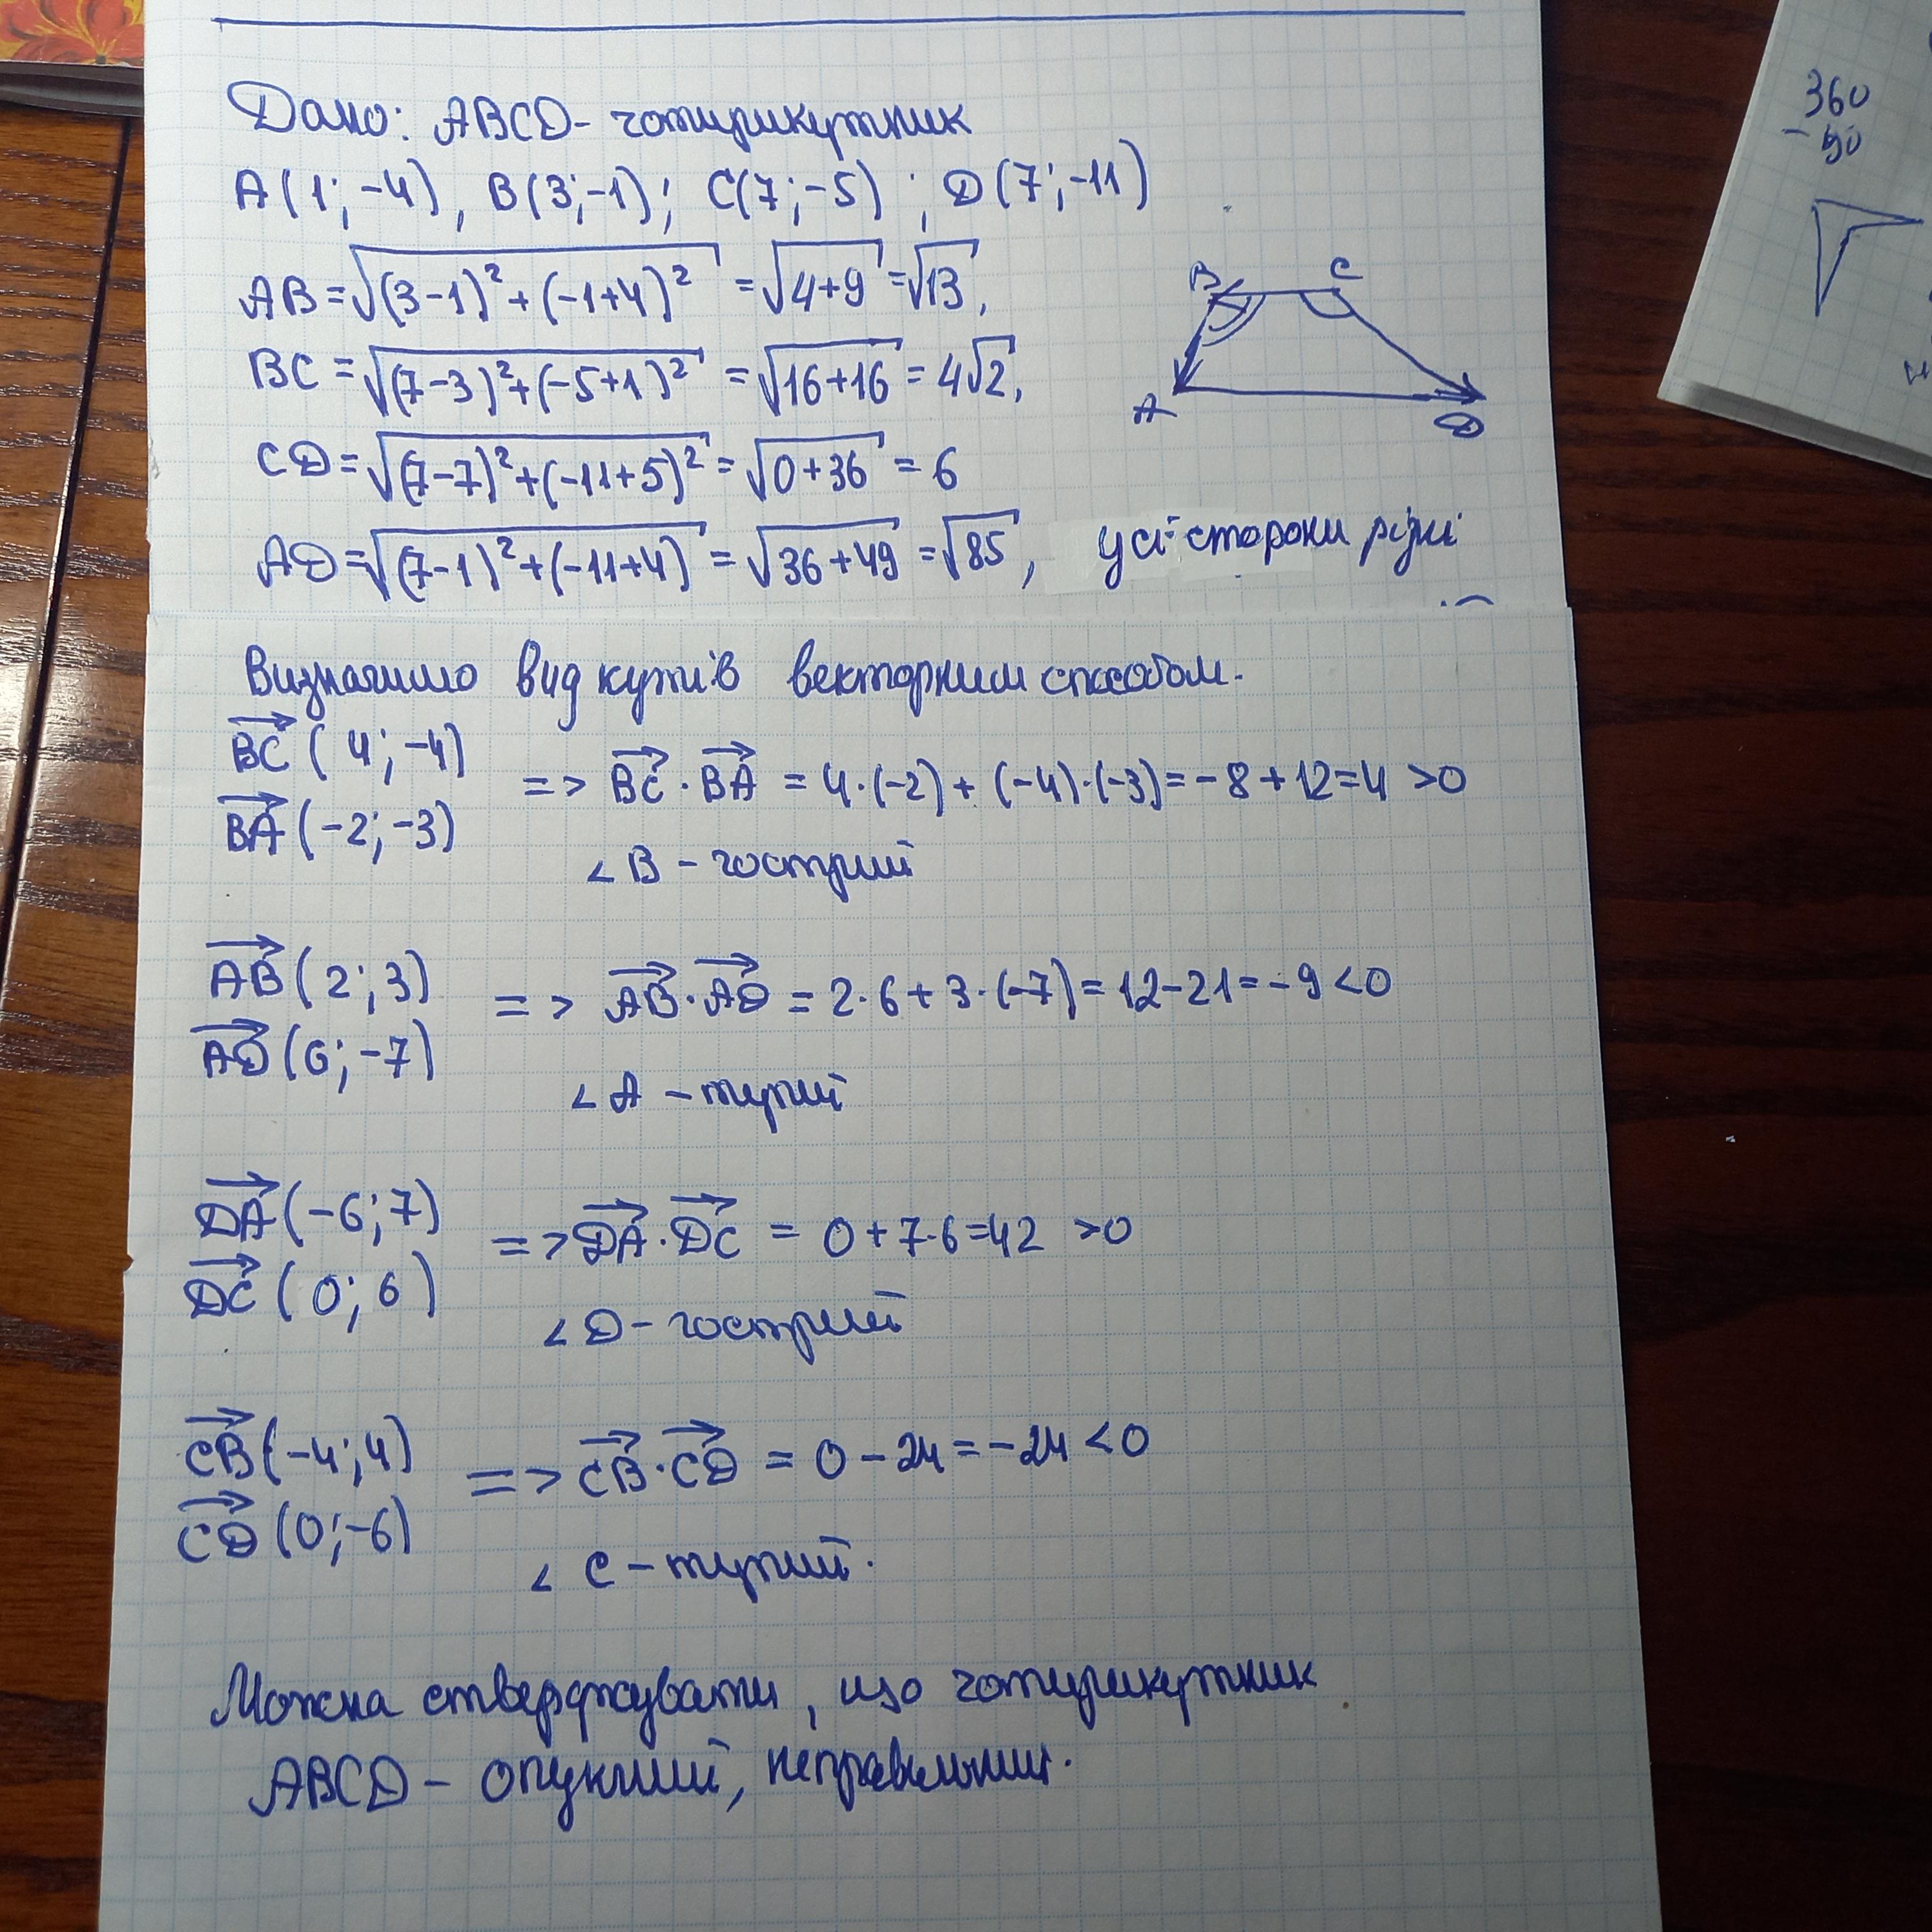 Дано: ABCD - чотирикутник
A(1; -4), B(3; -1); C(7; -5) ; D(7; -11)
AB = √(3-1)² + (-1+4)² = √4+9 = √13,
BC = √(7-3)² + (-5+1)² = √16+16 = 4√2,
CD = √(7-7)² + (-11+5)² = √0+36 = 6
AD = √(7-1)² + (-11+4)² = √36+49 = √85, усі сторони різні
B C
A D
Визначимо вид кутів векторним способом.
BC (4; -4)
BA (-2; -3)
=> BC · BA = 4·(-2) + (-4)·(-3) = -8 + 12 = 4 >0
∠B - гострий
AB (2; 3)
AD (6; -7)
=> AB · AD = 2·6 + 3·(-7) = 12-21 = -9 <0
∠A - тупий
DA (-6; 7)
DC (0; 6)
=> DA · DC = 0 + 7·6 = 42 >0
∠D - гострий
CB (-4; 4)
CD (0; -6)
=> CB · CD = 0 - 24 = -24 <0
∠C - тупий.
Можна стверджувати, що чотирикутник
ABCD - опуклий, неправильний.
360
- 50